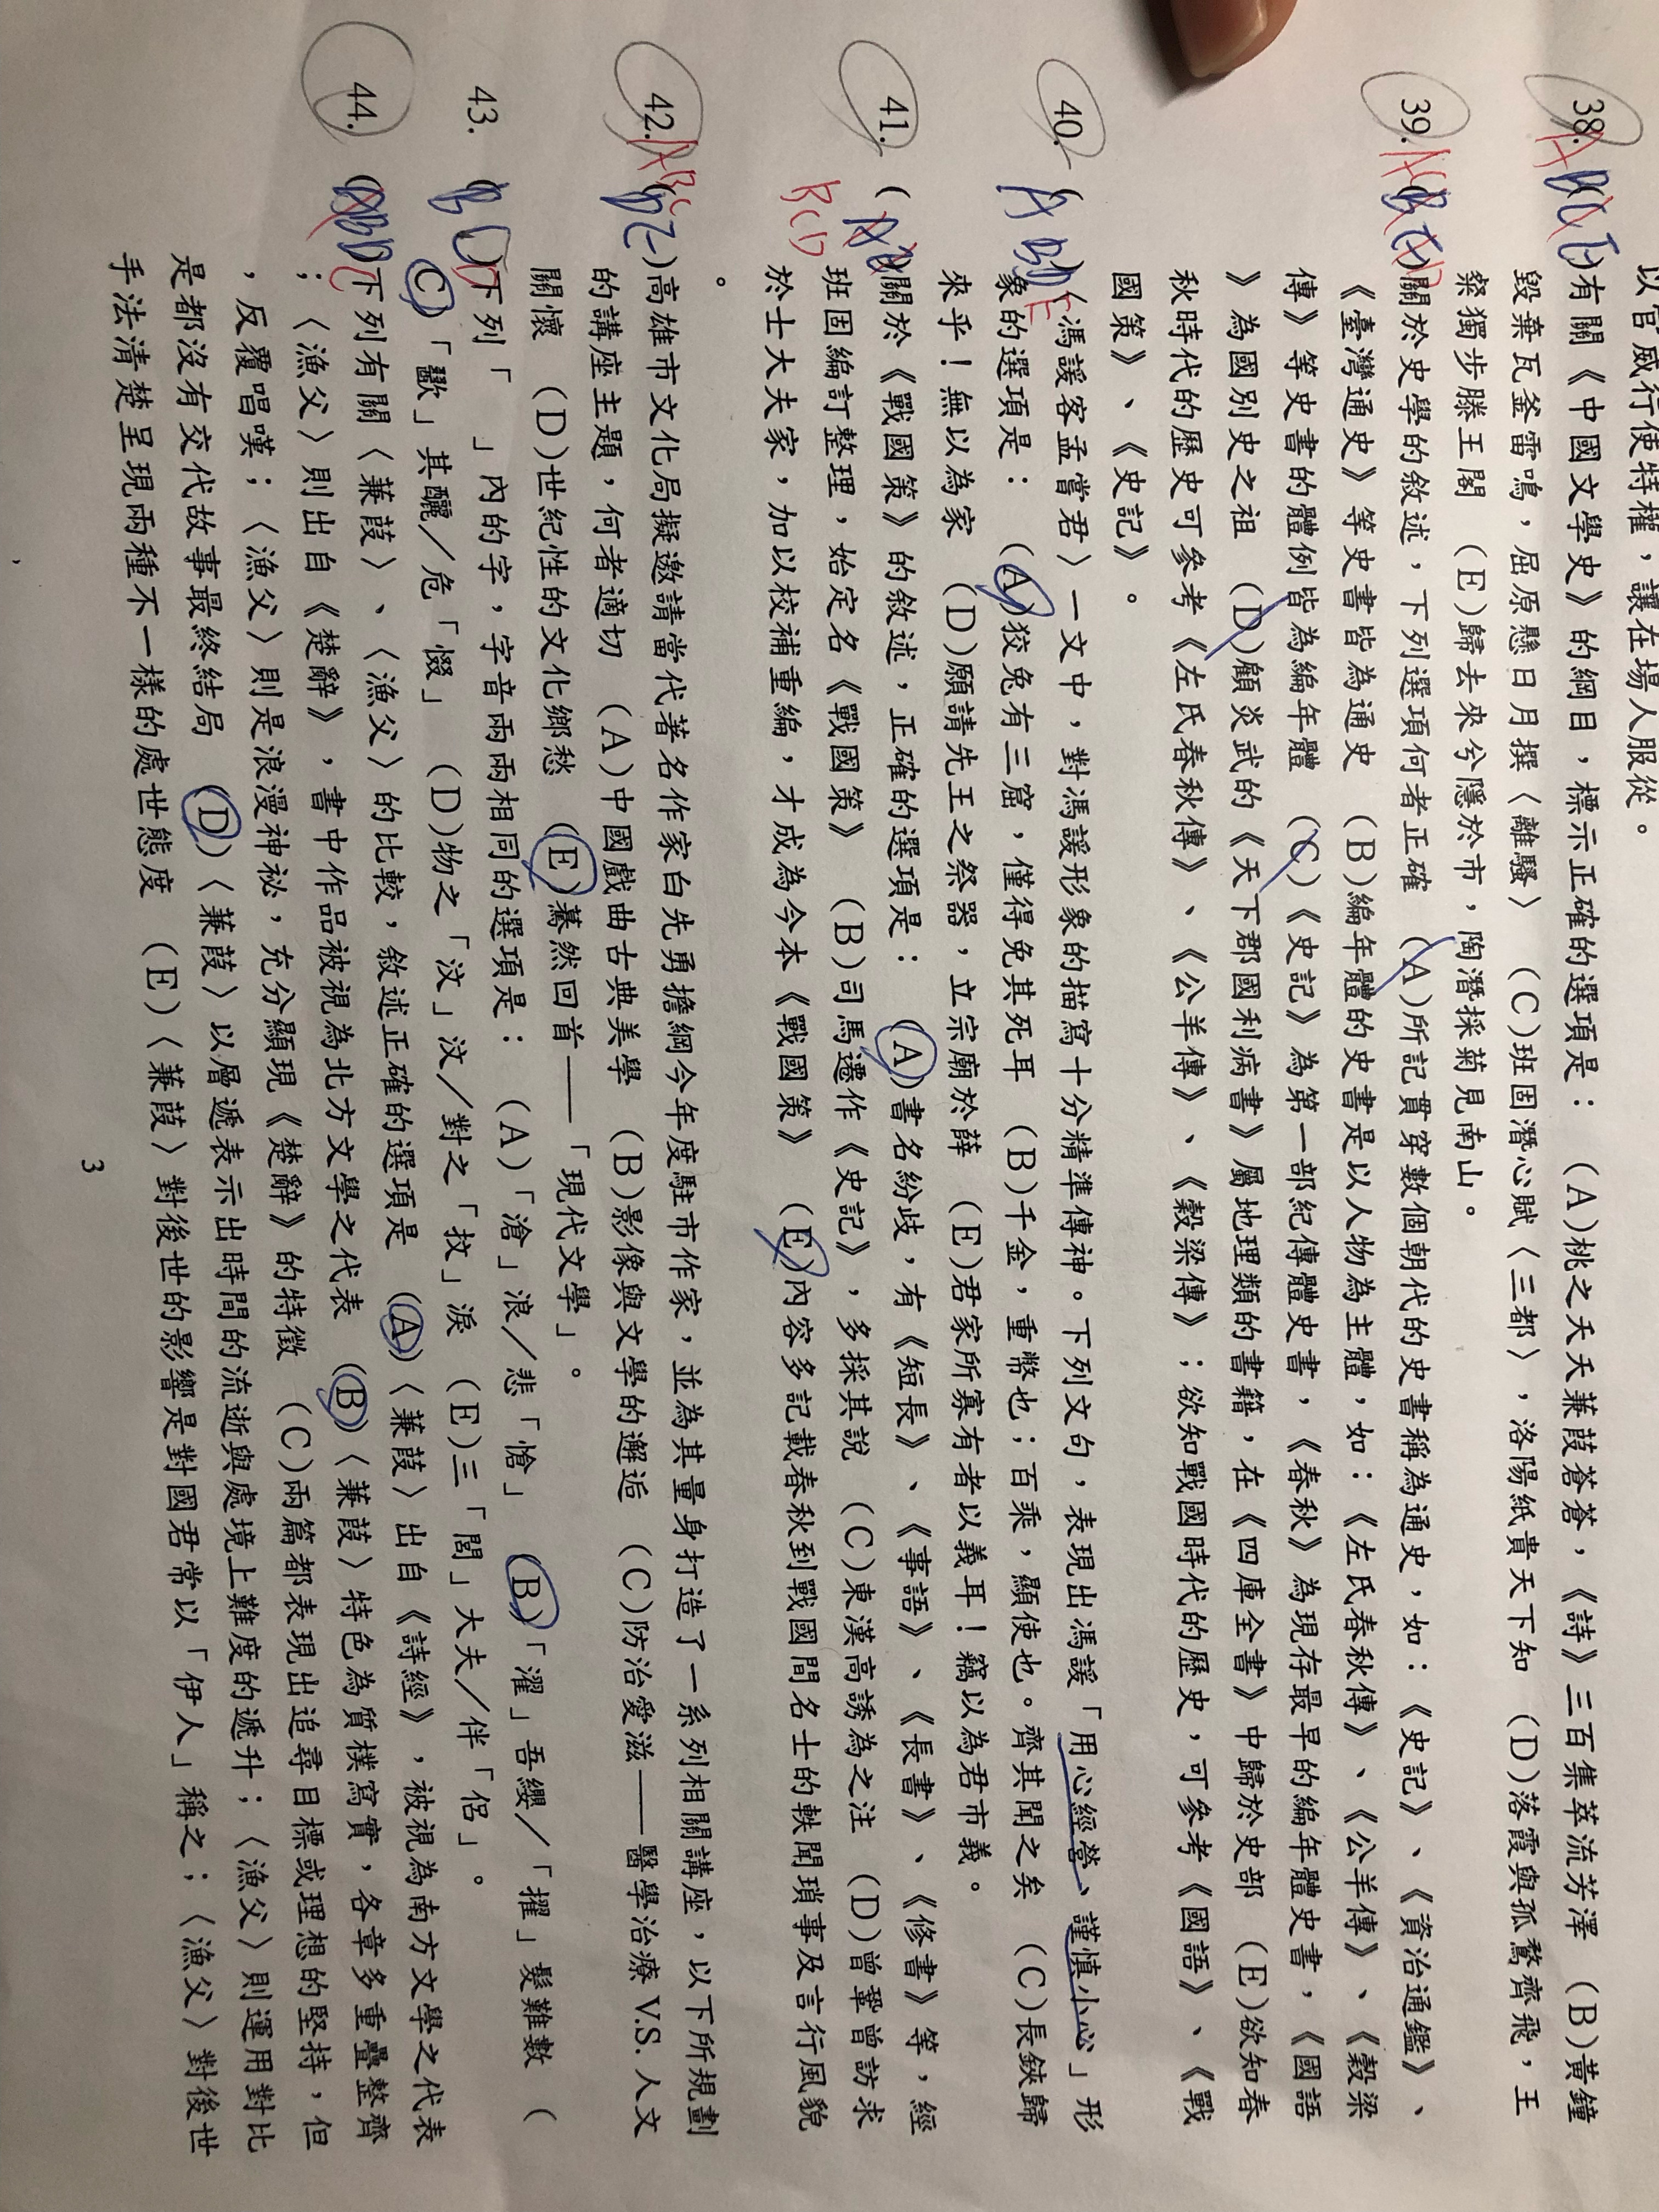 以官威行使特權，讓在場人服從。
38. 有關《中國文學史》的綱目，標示正確的選項是： (A)桃之夭夭兼葭蒼蒼，《詩》三百集萃流芳澤 (B)黃鐘
毀棄瓦釜雷鳴，屈原懸日月撰〈離騷〉 (C)班固潛心賦〈三都〉，洛陽紙貴天下知 (D)落霞與孤鶩齊飛，王
粲獨步滕王閣 (E)歸去來兮隱於市，陶潛採菊見南山。
39. 關於史學的敘述，下列選項何者正確 (A)所記貫穿數個朝代的史書稱為通史，如：《史記》、《資治通鑑》、
《臺灣通史》等史書皆為通史 (B)編年體的史書是以人物為主體，如：《左氏春秋傳》、《公羊傳》、《穀梁
傳》等史書的體例皆為編年體 (C)《史記》為第一部紀傳體史書，《春秋》為現存最早的編年體史書，《國語
》為國別史之祖 (D)顧炎武的《天下郡國利病書》屬地理類的書籍，在《四庫全書》中歸於史部 (E)欲知春
秋時代的歷史可參考《左氏春秋傳》、《公羊傳》、《穀梁傳》；欲知戰國時代的歷史，可參考《國語》、《戰
國策》、《史記》。
40. 〈馮諼客孟嘗君〉一文中，對馮諼形象的描寫十分精準傳神。下列文句，表現出馮諼「用心經營、謹慎小心」形
象的選項是： (A)狡兔有三窟，僅得免其死耳 (B)千金，重幣也；百乘，顯使也。齊其聞之矣 (C)長鋏歸
來乎！無以為家 (D)願請先王之祭器，立宗廟於薛 (E)君家所寡有者以義耳！竊以為君市義。
41. 關於《戰國策》的敘述，正確的選項是： (A)書名紛歧，有《短長》、《事語》、《長書》、《修書》等，經
BCD 班固編訂整理，始定名《戰國策》 (B)司馬遷作《史記》，多採其說 (C)東漢高誘為之注 (D)曾鞏曾訪求
於士大夫家，加以校補重編，才成為今本《戰國策》 (E)內容多記載春秋到戰國間名士的軼聞瑣事及言行風貌
。
42. ABC 高雄市文化局擬邀請當代著名作家白先勇擔綱今年度駐市作家，並為其量身打造了一系列相關講座，以下所規劃
的講座主題，何者適切 (A)中國戲曲古典美學 (B)影像與文學的邂逅 (C)防治愛滋——醫學治療 V.S. 人文
關懷 (D)世紀性的文化鄉愁 (E)驀然回首——「現代文學」。
43. 下列「　」內的字，字音兩兩相同的選項是： (A)「滄」浪／悲「愴」 (B)「濯」吾纓／「擢」髮難數 (
C)「歠」其醨／危「惙」 (D)物之「汶」汶／對之「抆」淚 (E)三「閭」大夫／伴「侶」。
44. 下列有關〈兼葭〉、〈漁父〉的比較，敘述正確的選項是 (A)〈兼葭〉出自《詩經》，被視為南方文學之代表
；〈漁父〉則出自《楚辭》，書中作品被視為北方文學之代表 (B)〈兼葭〉特色為質樸寫實，各章多重疊整齊
，反覆唱嘆；〈漁父〉則是浪漫神祕，充分顯現《楚辭》的特徵 (C)兩篇都表現出追尋目標或理想的堅持，但
是都沒有交代故事最終結局 (D)〈兼葭〉以層遞表示出時間的流逝與處境上難度的遞升；〈漁父〉則運用對比
手法清楚呈現兩種不一樣的處世態度 (E)〈兼葭〉對後世的影響是對國君常以「伊人」稱之；〈漁父〉對後世
3